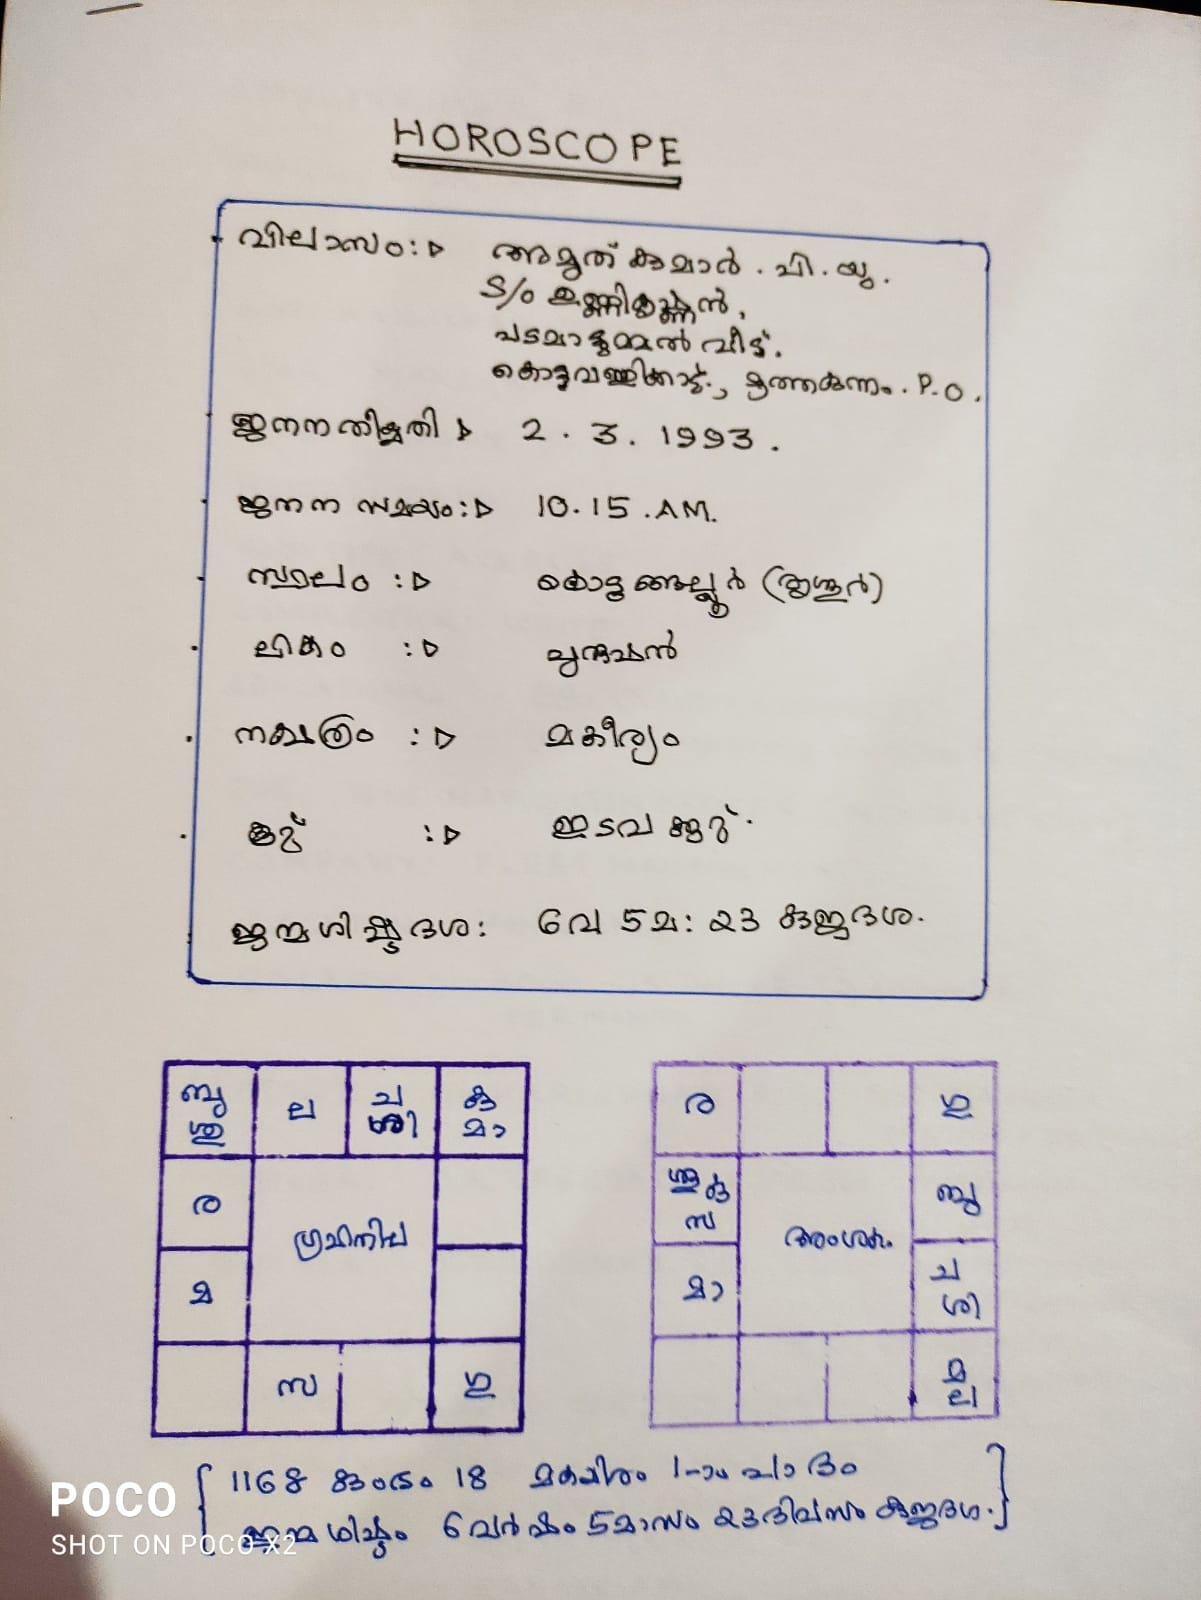 HOROSCOPE
വിലാസം: അമൃത് കുമാർ. പി. യു.
S/o ഉണ്ണികൃഷ്ണൻ,
പടമാട്ടുമ്മൽ വീട്.
കൊട്ടുവള്ളിക്കാട്., മൂത്തകുന്നം. P.O.
ജനനതീയതി 2. 3. 1993.
ജനന സമയം: 10.15.AM.
സ്ഥലം : കൊടുങ്ങല്ലൂർ (തൃശൂർ)
ലിംഗം : പുരുഷൻ
നക്ഷത്രം : മകീര്യം
കൂറ് : ഇടവക്കൂറ്.
ജന്മശിഷ്ടദശ: 6വ 5മ: 23 കുജദശ.
ബു ശു ല ച ശി കു മാ
ര
ഗ്രഹനില
മ
സ ഗു
ര ഗു
ശു കു സ ബു
അംശകം
മാ ച ശി
മ ല
1168 കുംഭം 18 മകയിരം 1-ാം പാദം
ജന്മശിഷ്ടം 6വർഷം 5മാസം 23ദിവസം കുജദശ.
POCO
SHOT ON POCO X2